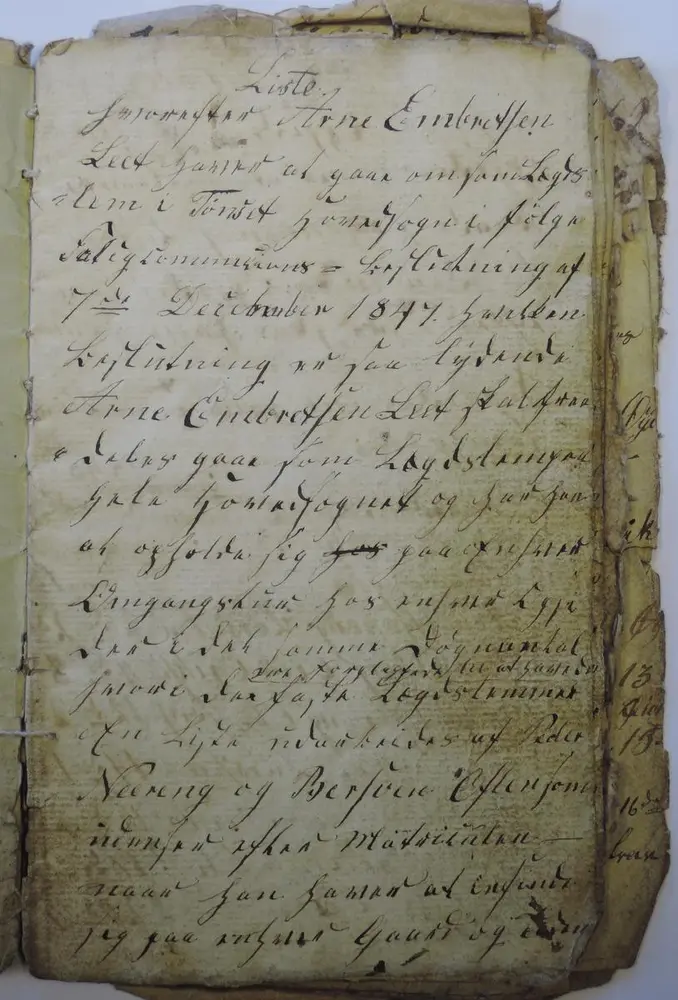 Liste
hvorefter Arne Embretsen
Leet haver at gaae om som Lægds
-lem i Tørset Hovedsogn i følge
Fatigcommissions = beslutning af
7de December 1847. Hvilken
beslutning er saa lydende
Arne Embretsen Leet skal frem
"deles gaae som Lægdslem paa
hele Hovedsognet og har han
at opholde sig hos paa Enhver
Omgangstuur hos enhver Opsi
der i det samme Døgnantal
hvori de faste Lægdslemmer
ere forpligtede til at have dem
En Liste udarbeides af Peder
Næreng og Eftersom
udviser efter Matriculen
naar han haver at indfinde
sig paa enhver Gaard og
13
15
16de